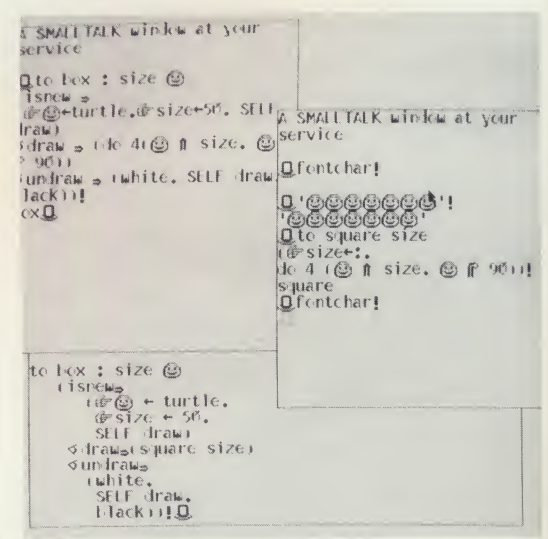 A SMALLTALK window at your
service
to box : size ☺
isnew ⇒
☞☺←turtle.☞size←50. SELF
draw)
ᗏdraw ⇒ (do 4(☺ ⇑ size. ☺
90))
ᗏundraw ⇒ (white. SELF draw.
black))!
box
A SMALLTALK window at your
service
fontchar!
'☺☺☺☺☺☺☺'!
'☺☺☺☺☺☺☺'
to square size
(☞size←:.
do 4 (☺ ⇑ size. ☺ ↱ 90))!
square
fontchar!
to box : size ☺
(isnew⇒
(☞☺ ← turtle.
☞size ← 50.
SELF draw)
ᗏdraw⇒(square size)
ᗏundraw⇒
(white.
SELF draw.
black))!